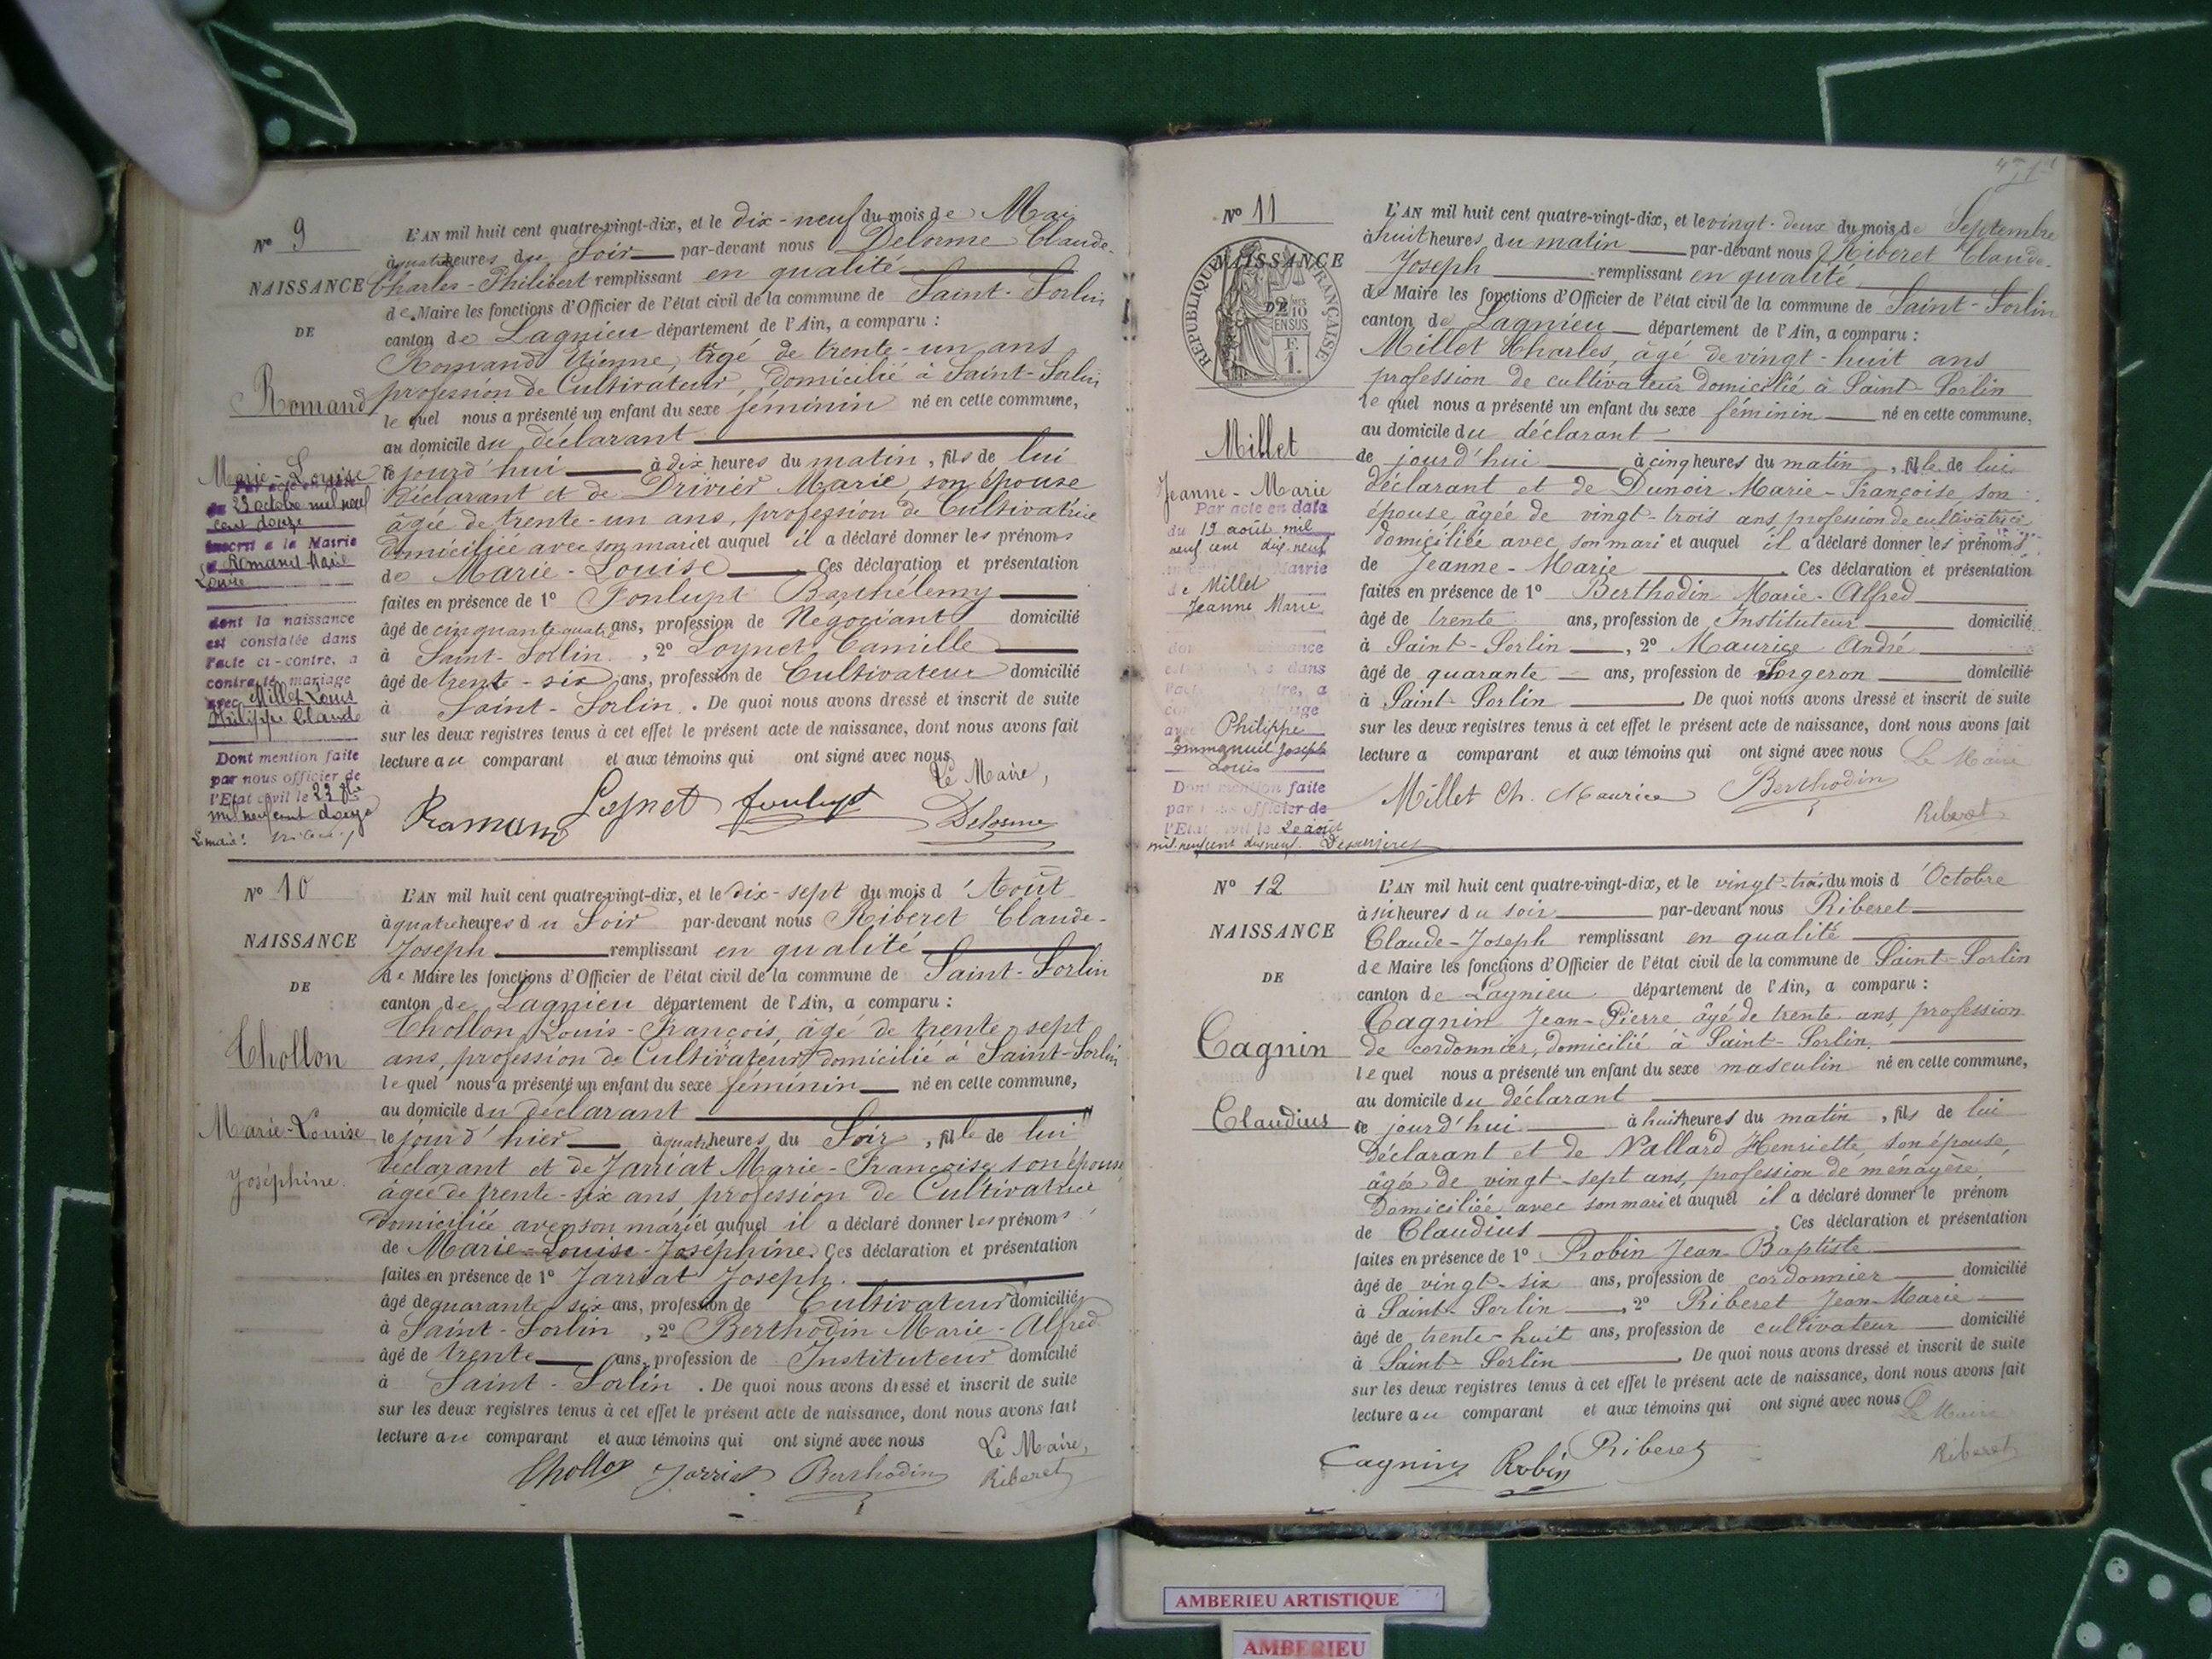 N° 9
NAISSANCE
DE
Romand
Marie-Louise
23 octobre mil neuf
cent douze
inscrit à la Mairie
Romand Marie
Louise
dont la naissance
est constatée dans
l'acte ci-contre, a
contracté mariage
avec Millet Louis
Philippe Claude
Dont mention faite
par nous officier de
l'Etat civil le 23 8bre
mil neuf cent douze
L'AN mil huit cent quatre-vingt-dix, et le dix-neuf du mois de Mai
à quatre heures du Soir par-devant nous Delorme Claude-
Charles-Philibert remplissant en qualité
de Maire les fonctions d'Officier de l'état civil de la commune de Saint-Sorlin
canton de Lagnieu département de l'Ain, a comparu :
Romand Etienne, âgé de trente-un ans
profession de Cultivateur, domicilié à Saint-Sorlin
lequel nous a présenté un enfant du sexe féminin né en cette commune,
au domicile du déclarant
ce jourd'hui à dix heures du matin, fils de lui
déclarant et de Drivier Marie, son épouse
âgée de trente-un ans, profession de Cultivatrice
domiciliée avec son mari et auquel il a déclaré donner les prénoms
de Marie-Louise Ces déclaration et présentation
faites en présence de 1° Foulupt Barthélemy
âgé de cinquante quatre ans, profession de Négociant domicilié
à Saint-Sorlin, 2° Loynet Camille
âgé de trente-six ans, profession de Cultivateur domicilié
à Saint-Sorlin. De quoi nous avons dressé et inscrit de suite
sur les deux registres tenus à cet effet le présent acte de naissance, dont nous avons fait
lecture au comparant et aux témoins qui ont signé avec nous
Le Maire,
Romand Loynet Foulupt Delorme
N° 10
NAISSANCE
DE
Chollon
Marie-Louise
Joséphine.
L'AN mil huit cent quatre-vingt-dix, et le dix-sept du mois d'Août
à quatre heures du Soir par-devant nous Riberet Claude-
Joseph remplissant en qualité
de Maire les fonctions d'Officier de l'état civil de la commune de Saint-Sorlin
canton de Lagnieu département de l'Ain, a comparu :
Chollon Louis-François, âgé de trente-sept
ans, profession de Cultivateur domicilié à Saint-Sorlin
lequel nous a présenté un enfant du sexe féminin né en cette commune,
au domicile du déclarant
le jour d'hier à quatre heures du Soir, fille de lui
déclarant et de Jarriat Marie-Françoise, son épouse
âgée de trente-six ans, profession de Cultivatrice
domiciliée avec son mari et auquel il a déclaré donner les prénoms
de Marie-Louise-Joséphine. Ces déclaration et présentation
faites en présence de 1° Jarriat Joseph.
âgé de quarante-six ans, profession de Cultivateur domicilié
à Saint-Sorlin, 2° Berthodin Marie-Alfred
âgé de trente ans, profession de Instituteur domicilié
à Saint-Sorlin. De quoi nous avons dressé et inscrit de suite
sur les deux registres tenus à cet effet le présent acte de naissance, dont nous avons fait
lecture au comparant et aux témoins qui ont signé avec nous Le Maire,
Chollon Jarriat Berthodin Riberet
N° 11
NAISSANCE
DE
REPUBLIQUE FRANÇAISE
2/10 EN SUS
Millet
Jeanne-Marie
Par acte en date
du 19 août mil
neuf cent dix-neuf
Mairie
de Millet
Jeanne Marie
dans
avec Philippe
Emmanuel Joseph
Louis
Dont mention faite
par nous officier de
l'Etat civil le 20 août
mil neuf cent dix neuf
L'AN mil huit cent quatre-vingt-dix, et le vingt-deux du mois de Septembre
à huit heures du matin par-devant nous Riberet Claude-
Joseph remplissant en qualité
de Maire les fonctions d'Officier de l'état civil de la commune de Saint-Sorlin
canton de Lagnieu département de l'Ain, a comparu :
Millet Charles, âgé de vingt-huit ans
profession de cultivateur domicilié à Saint-Sorlin
lequel nous a présenté un enfant du sexe féminin né en cette commune,
au domicile du déclarant
ce jourd'hui à cinq heures du matin, fille de lui
déclarant et de Dunoir Marie-Françoise son
épouse âgée de vingt-trois ans, profession de cultivatrice
domiciliée avec son mari et auquel il a déclaré donner les prénoms
de Jeanne-Marie Ces déclaration et présentation
faites en présence de 1° Berthodin Marie-Alfred
âgé de trente ans, profession de Instituteur domicilié
à Saint-Sorlin, 2° Maurice André
âgé de quarante ans, profession de Forgeron domicilié
à Saint-Sorlin De quoi nous avons dressé et inscrit de suite
sur les deux registres tenus à cet effet le présent acte de naissance, dont nous avons fait
lecture a comparant et aux témoins qui ont signé avec nous Le Maire
Millet Ch. Maurice Berthodin Riberet
N° 12
NAISSANCE
DE
Cagnin
Claudius
L'AN mil huit cent quatre-vingt-dix, et le vingt-trois du mois d'Octobre
à six heures du soir par-devant nous Riberet
Claude-Joseph remplissant en qualité
de Maire les fonctions d'Officier de l'état civil de la commune de Saint-Sorlin
canton de Lagnieu département de l'Ain, a comparu :
Cagnin Jean-Pierre âgé de trente ans, profession
de cordonnier, domicilié à Saint-Sorlin.
lequel nous a présenté un enfant du sexe masculin né en cette commune,
au domicile du déclarant
ce jourd'hui à huit heures du matin, fils de lui
déclarant et de Vallard Henriette, son épouse,
âgée de vingt-sept ans, profession de ménagère
domiciliée avec son mari et auquel il a déclaré donner le prénom
de Claudius. Ces déclaration et présentation
faites en présence de 1° Robin Jean-Baptiste
âgé de vingt-six ans, profession de cordonnier domicilié
à Saint-Sorlin, 2° Riberet Jean-Marie
âgé de trente-huit ans, profession de cultivateur domicilié
à Saint-Sorlin. De quoi nous avons dressé et inscrit de suite
sur les deux registres tenus à cet effet le présent acte de naissance, dont nous avons fait
lecture au comparant et aux témoins qui ont signé avec nous Le Maire
Cagnin Robin Riberet Riberet
AMBERIEU ARTISTIQUE
AMBERIEU